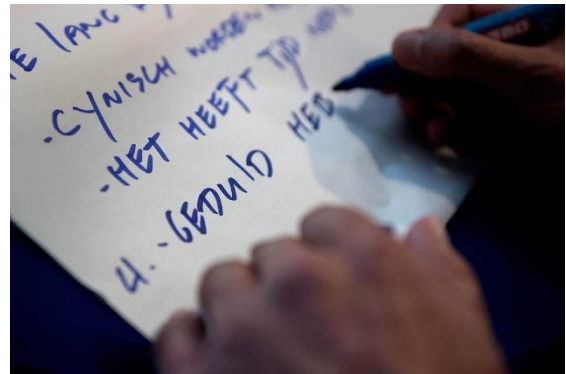 LANG
- CYNISCH WORDEN
- HET HEEFT TIJD
4. - GEDULD HEB